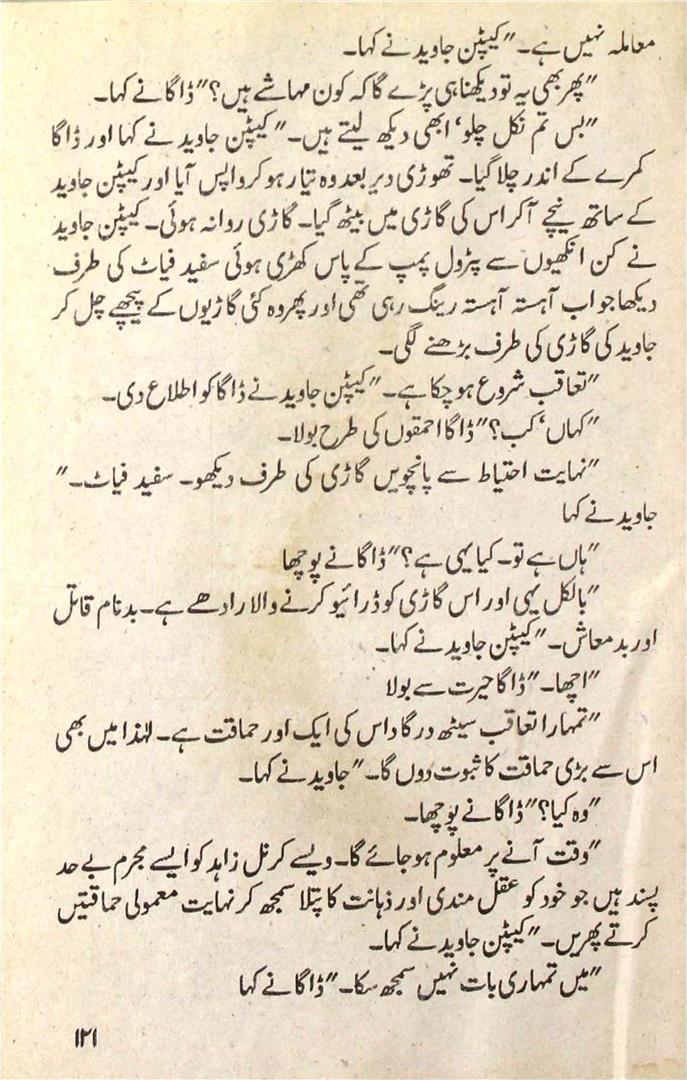 معاملہ نہیں ہے۔" کیپٹن جاوید نے کہا۔
"پھر بھی یہ تو دیکھنا ہی پڑے گا کہ کون مہاشے ہیں؟" ڈاگا نے کہا۔
"بس تم نکل چلو' ابھی دیکھ لیتے ہیں۔" کیپٹن جاوید نے کہا اور ڈاگا
کمرے کے اندر چلا گیا۔ تھوڑی دیر بعد وہ تیار ہو کر واپس آیا اور کیپٹن جاوید
کے ساتھ نیچے آکر اس کی گاڑی میں بیٹھ گیا۔ گاڑی روانہ ہوئی۔ کیپٹن جاوید
نے کن انکھیوں سے پٹرول پمپ کے پاس کھڑی ہوئی سفید فیاٹ کی طرف
دیکھا جو اب آہستہ آہستہ رینگ رہی تھی اور پھر وہ کئی گاڑیوں کے پیچھے چل کر
جاوید کی گاڑی کی طرف بڑھنے لگی۔
"تعاقب شروع ہو چکا ہے۔" کیپٹن جاوید نے ڈاگا کو اطلاع دی۔
"کہاں' کب؟" ڈاگا احمقوں کی طرح بولا۔
"نہایت احتیاط سے پانچویں گاڑی کی طرف دیکھو۔ سفید فیاٹ۔"
جاوید نے کہا
"ہاں ہے تو۔ کیا یہی ہے؟" ڈاگا نے پوچھا
"بالکل یہی اور اس گاڑی کو ڈرائیو کرنے والا رادھے ہے۔ بدنام قاتل
اور بدمعاش۔" کیپٹن جاوید نے کہا۔
"اچھا۔" ڈاگا حیرت سے بولا
"تمہارا تعاقب سیٹھ درگا داس کی ایک اور حماقت ہے۔ لہٰذا میں بھی
اس سے بڑی حماقت کا ثبوت دوں گا۔" جاوید نے کہا۔
"وہ کیا؟" ڈاگا نے پوچھا۔
"وقت آنے پر معلوم ہو جائے گا۔ ویسے کرنل زاہد کو ایسے مجرم بے حد
پسند ہیں جو خود کو عقل مندی اور ذہانت کا پتلا سمجھ کر نہایت معمولی حماقتیں
کرتے پھریں۔" کیپٹن جاوید نے کہا۔
"میں تمہاری بات نہیں سمجھ سکا۔" ڈاگا نے کہا
۱۲۱